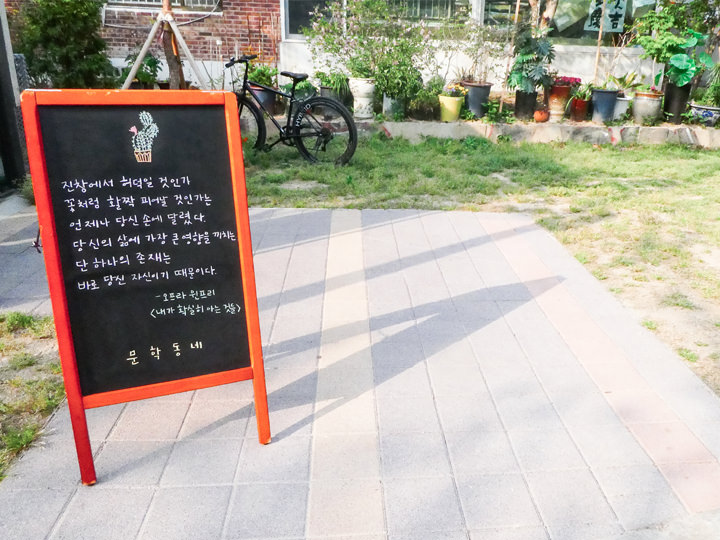 진창에서 허덕일 것인가
꽃처럼 활짝 피어날 것인가는
언제나 당신 손에 달렸다.
당신의 삶에 가장 큰 영향을 끼치는
단 하나의 존재는
바로 당신 자신이기 때문이다.
-오프라 윈프리
<내가 확실히 아는 것들>
문학동네